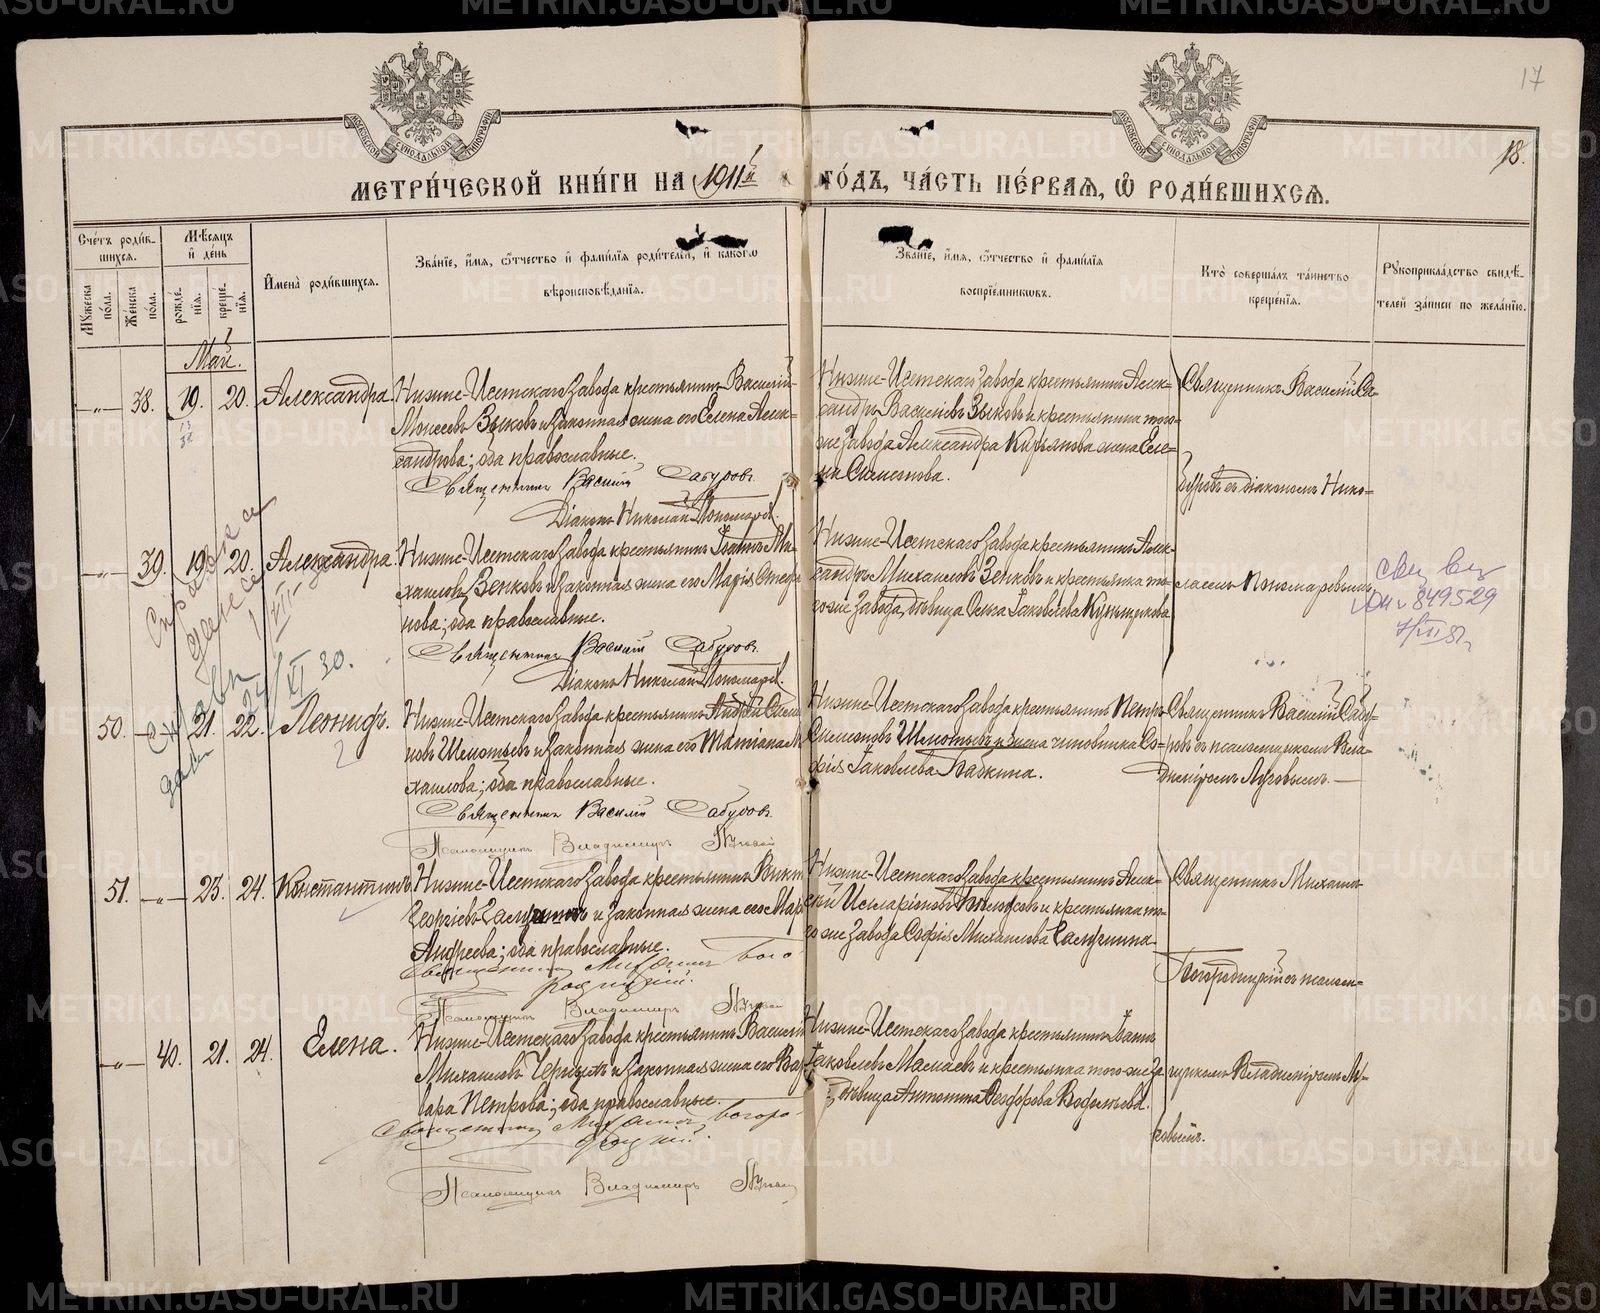 17
18.
МЕТРИ́ЧЕСКОЙ КНИ́ГИ НА 1911й ГО́ДЪ, ЧА́СТЬ ПЕ́РВАѦ, Ѽ РОДИ́ВШИХСѦ.
Сче́тъ роди́в-
шихся.
Мѣ́сяцъ
и де́нь
Мꙋжеска по́ла.
Же́нска по́ла.
рожде́нїя.
креще́нїя.
И҆мена̀ роди́вшихся.
Зва́нїе, и҆́мя, ѻ҆́тчество и҆ фами́лїя роди́телей, и҆ како́гѡ
вѣроисповѣ́данїя.
Зва́нїе, и҆́мя, ѻ҆́тчество и҆ фами́лїя
воспрїе́мниковъ.
Кто̀ соверша́лъ та́инство
креще́нїя.
Рꙋкоприкла́дство свидѣ́-
телей за́писи по жела́нїю.
Май.
—„— 38. 19. 20. Александра.
Нижне-Исетскаго завода крестьянинъ Василій
Моисеевъ Зыковъ и законная жена его Елена Алек-
сандрова; оба православные.
Священникъ Василій Сабуровъ.
Діаконъ Николай Пономаревъ.
Нижне-Исетскаго завода крестьянинъ Алек-
сандръ Васильевъ Зыковъ и крестьянина того-
же завода Александра Кирьянова жена Еле-
на Симеонова.
Священникъ Василій Са-
буровъ съ діакономъ Нико-
лаемъ Пономаревымъ
—„— 39. 19. 20. Александра.
Нижне-Исетскаго завода крестьянинъ Іоаннъ Ми-
хаиловъ Зенковъ и законная жена его Марія Стефа-
нова; оба православные.
Священникъ Василій Сабуровъ.
Діаконъ Николай Пономаревъ.
Нижне-Исетскаго завода крестьянинъ Алек-
сандръ Михаиловъ Зенковъ и крестьянка то-
гоже завода, дѣвица Ольга Іаковлева
849529
Справка
24/XI 30.
50. —„— 21. 22. Леонидъ.
Нижне-Исетскаго завода крестьянинъ Андрей Симео-
новъ и законная жена его Татіана Ми-
хаилова; оба православные.
Священникъ Василій Сабуровъ.
Псаломщикъ Владимиръ Луговой
Нижне-Исетскаго завода крестьянинъ Петръ
Симеоновъ и жена чиновника Со-
фія Іаковлева Бабкина.
Священникъ Василій Сабу-
ровъ съ псаломщикомъ Вла-
диміромъ Луговымъ. —
51. —„— 23. 24. Константинъ.
Нижне-Исетскаго завода крестьянинъ Викт
Георгіевъ и законная жена его Мар
Андреева; оба православные.
Священникъ Михаилъ Бого-
родицкій.
Псаломщикъ Владимиръ Луговой
Нижне-Исетскаго завода крестьянинъ Алек-
сѣй Илларіоновъ и крестьянка то-
го же завода Софія Михаилова
Священникъ Михаилъ
Богородицкій съ псалом-
щикомъ Владиміромъ Лу-
говымъ.
—„— 40. 21. 24. Елена.
Нижне-Исетскаго завода крестьянинъ Василій
Михаиловъ и законная жена его Вар-
вара Петрова; оба православные.
Священникъ Михаилъ Богоро-
дицкій.
Псаломщикъ Владимиръ Луговой
Нижне-Исетскаго завода крестьянинъ Іоаннъ
Іаковлевъ Мамаевъ и крестьянка того же за
дѣвица Антонина Ѳеодорова
METRIKI.GASO-URAL.RU